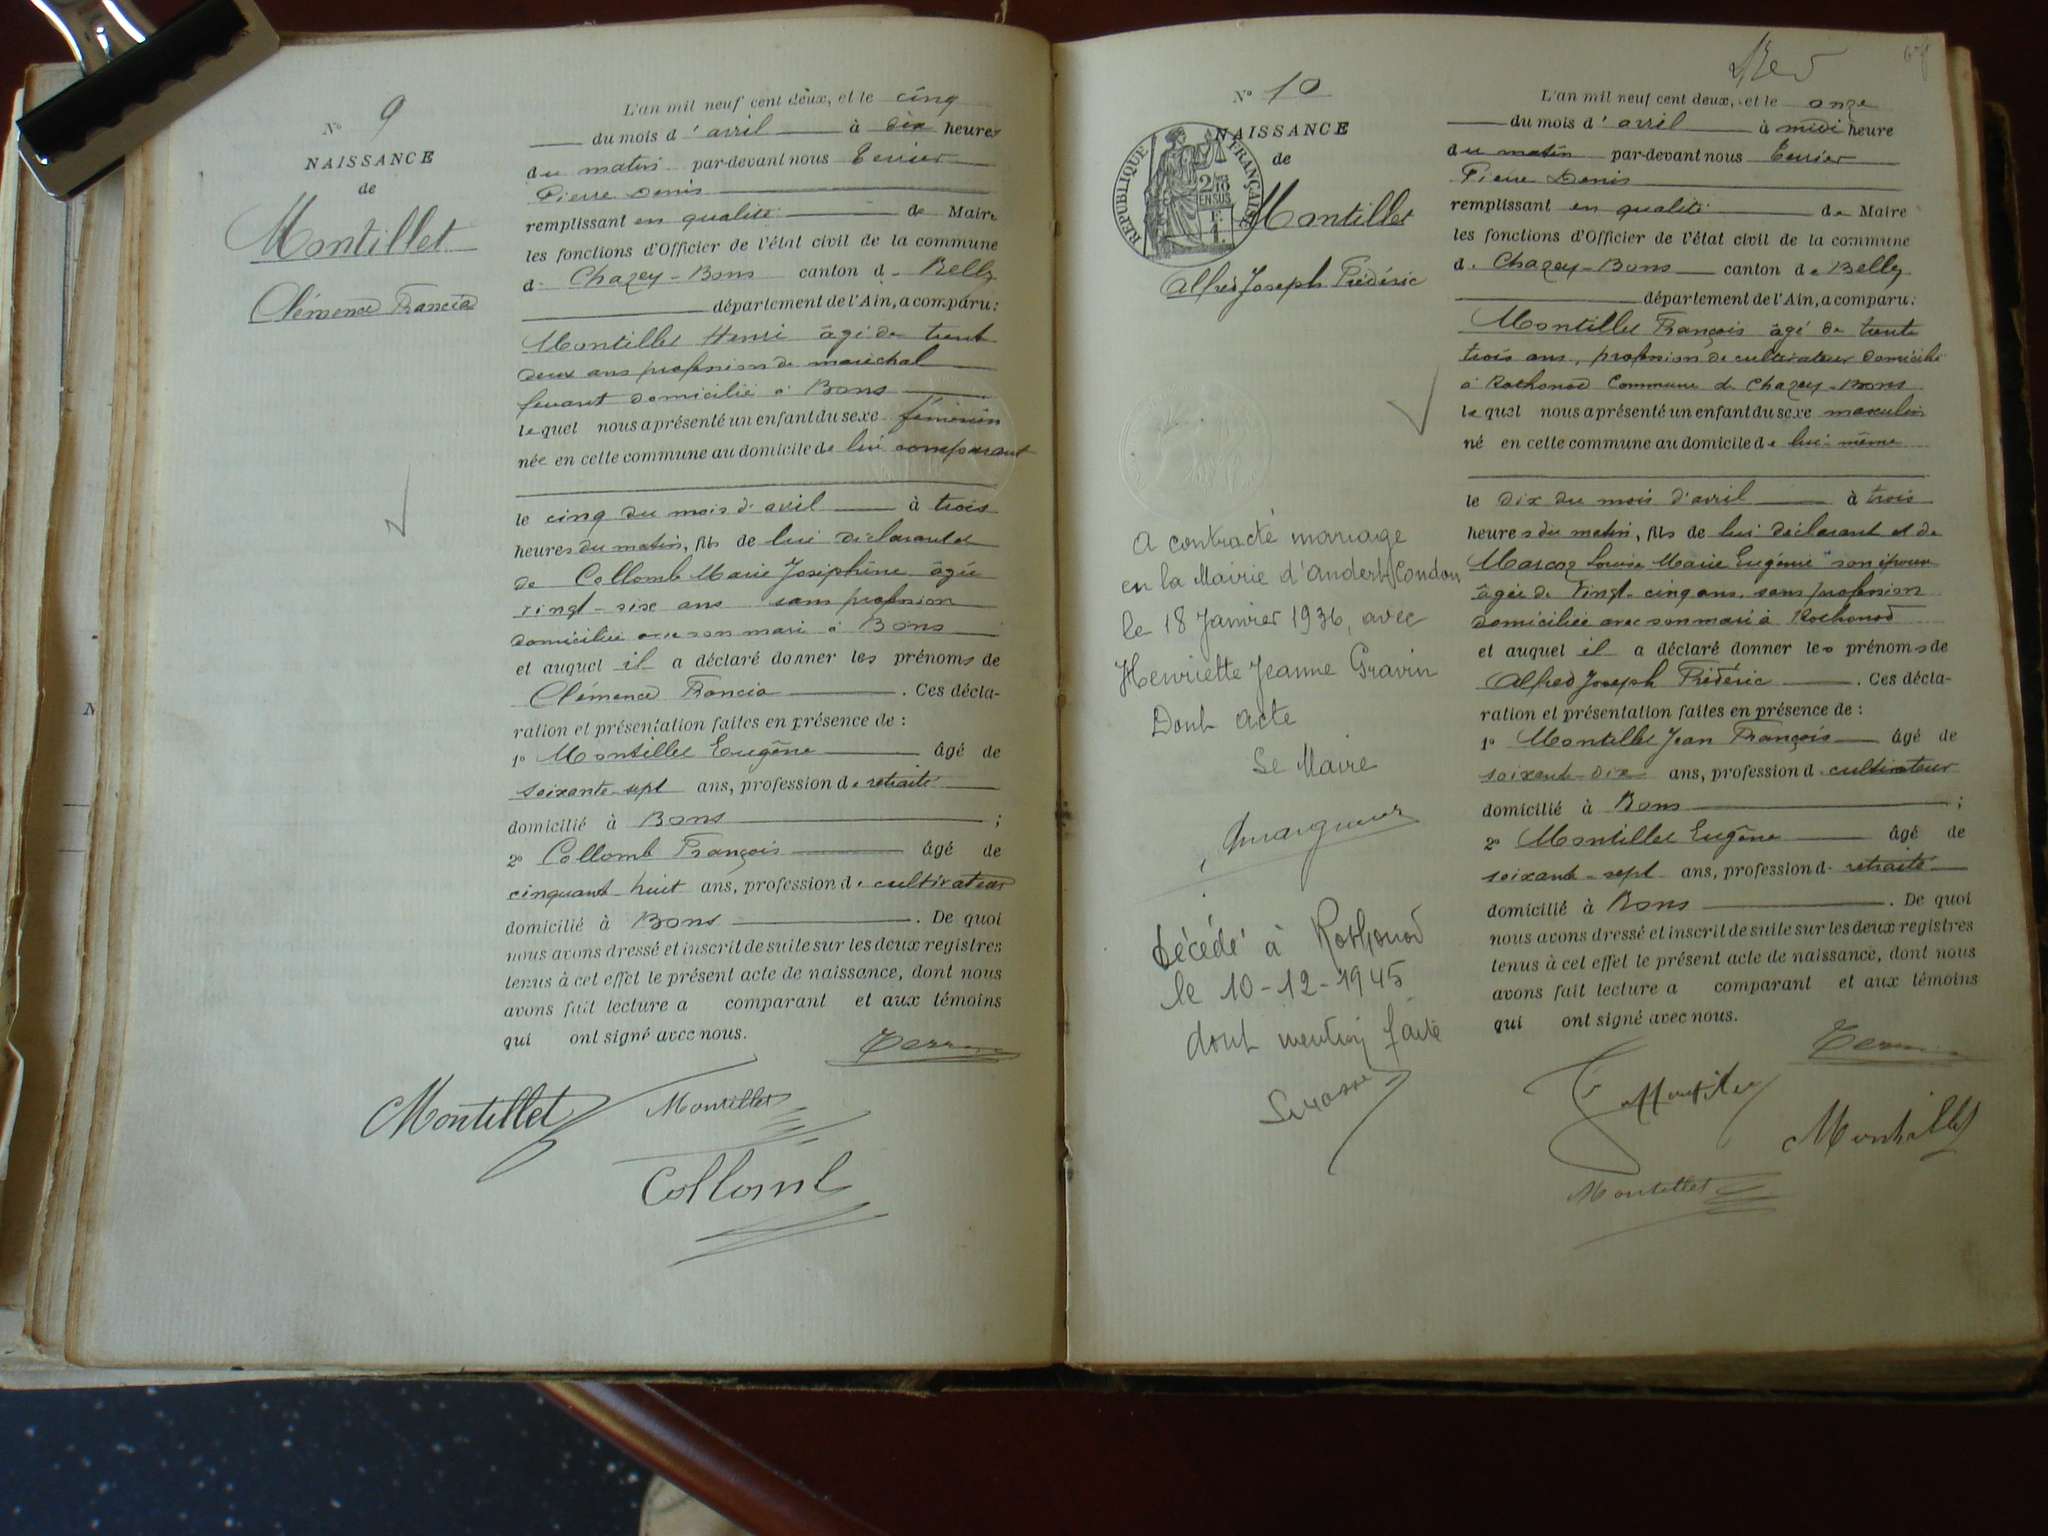 N° 9
NAISSANCE
de
Montillet
Clémence Francia
L'an mil neuf cent deux, et le cinq
du mois d'avril à dix heures
du matin par-devant nous Terrier
Pierre Denis
remplissant en qualité de Maire
les fonctions d'Officier de l'état civil de la commune
de Chazey-Bons canton de Belley
département de l'Ain, a comparu:
Montillet Henri âgé de trent
deux ans profession de maréchal
ferrant domicilié à Bons
lequel nous a présenté un enfant du sexe féminin
née en cette commune au domicile de lui comparant
le cinq du mois d'avril à trois
heures du matin, fils de lui déclarant et
de Collomb Marie Joséphine âgée
vingt-six ans sans profession
domiciliée avec son mari à Bons
et auquel il a déclaré donner les prénoms de
Clémence Francia . Ces décla-
ration et présentation faites en présence de :
1° Montillet Eugène âgé de
soixante-sept ans, profession de retraité
domicilié à Bons ;
2° Collomb François âgé de
cinquante huit ans, profession de cultivateur
domicilié à Bons . De quoi
nous avons dressé et inscrit de suite sur les deux registres
tenus à cet effet le présent acte de naissance, dont nous
avons fait lecture a comparant et aux témoins
qui ont signé avec nous.
Montillet Montillet
Collomb
Bed
67
N° 10
NAISSANCE
de
RÉPUBLIQUE FRANÇAISE
2/10 EN SUS
F.
1.
Montillet
Alfred Joseph Frédéric
A contracté mariage
en la Mairie d'Andert Condon
le 18 Janvier 1936, avec
Henriette Jeanne Gravin
Dont acte
Le Maire
Décédé à Rothonod
le 10-12-1945
dont mention faite
L'an mil neuf cent deux, et le onze
du mois d'avril à midi heure
du matin par-devant nous Terrier
Pierre Denis
remplissant en qualité de Maire
les fonctions d'Officier de l'état civil de la commune
de Chazey-Bons canton de Belley
département de l'Ain, a comparu:
Montillet François âgé de trente
trois ans, profession de cultivateur domicilié
à Rothonod Commune de Chazey-Bons
lequel nous a présenté un enfant du sexe masculin
né en cette commune au domicile de lui-même
le dix du mois d'avril à trois
heures du matin, fils de lui déclarant et de
Marcoz Louise Marie Eugénie son épouse
âgée de vingt-cinq ans sans profession
domiciliée avec son mari à Rothonod
et auquel il a déclaré donner les prénoms de
Alfred Joseph Frédéric . Ces décla-
ration et présentation faites en présence de :
1° Montillet Jean François âgé de
soixante-dix ans, profession de cultivateur
domicilié à Bons ;
2° Montillet Eugène âgé de
soixante-sept ans, profession de retraité
domicilié à Bons . De quoi
nous avons dressé et inscrit de suite sur les deux registres
tenus à cet effet le présent acte de naissance, dont nous
avons fait lecture a comparant et aux témoins
qui ont signé avec nous.
Montillet
Montillet